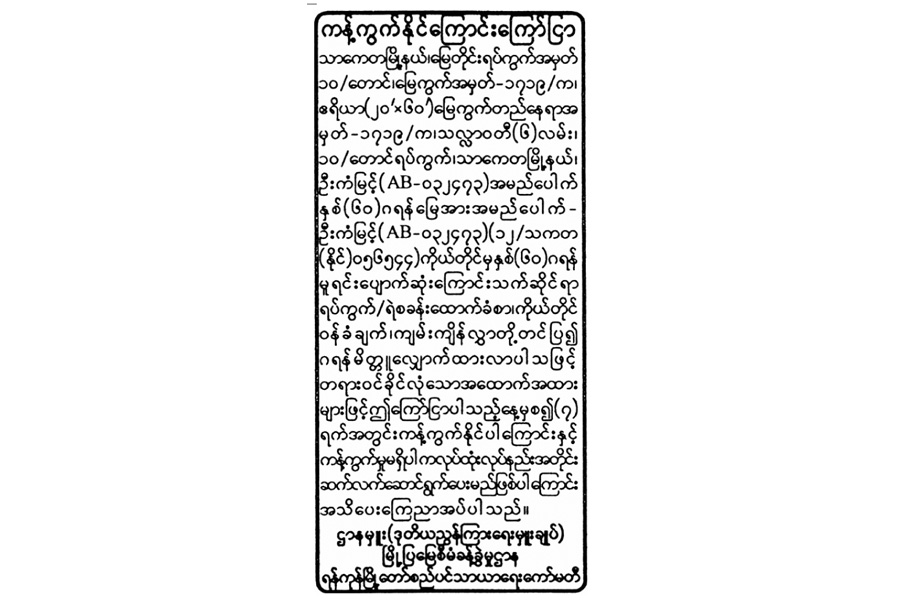 ကန့်ကွက်နိုင်ကြောင်းကြော်ငြာ
သာကေတမြို့နယ်၊မြေတိုင်းရပ်ကွက်အမှတ်
၁၀/တောင်၊မြေကွက်အမှတ်-၁၇၁၉/က၊
ဧရိယာ(၂၀′×၆၀′)မြေကွက်တည်နေရာအ
မှတ်-၁၇၁၉/က၊သလ္လာဝတီ(၆)လမ်း၊
၁၀/တောင်ရပ်ကွက်၊သာကေတမြို့နယ်၊
ဦးကံမြင့်(AB-၀၃၂၄၇၃)အမည်ပေါက်
နှစ်(၆၀)ဂရန်မြေအားအမည်ပေါက်-
ဦးကံမြင့်(AB-၀၃၂၄၇၃)(၁၂/သကတ
(နိုင်)၀၅၆၅၄၄)ကိုယ်တိုင်မှနှစ်(၆၀)ဂရန်
မူရင်းပျောက်ဆုံးကြောင်းသက်ဆိုင်ရာ
ရပ်ကွက်/ရဲစခန်းထောက်ခံစာ၊ကိုယ်တိုင်
ဝန်ခံချက်၊ကျမ်းကျိန်လွှာတို့တင်ပြ၍
ဂရန်မိတ္တူလျှောက်ထားလာပါသဖြင့်
တရားဝင်ခိုင်လုံသောအထောက်အထား
များဖြင့်ဤကြော်ငြာပါသည့်နေ့မှစ၍(၇)
ရက်အတွင်းကန့်ကွက်နိုင်ပါကြောင်းနှင့်
ကန့်ကွက်မှုမရှိပါကလုပ်ထုံးလုပ်နည်းအတိုင်း
ဆက်လက်ဆောင်ရွက်ပေးမည်ဖြစ်ပါကြောင်း
အသိပေးကြေညာအပ်ပါသည်။
ဌာနမှူး(ဒုတိယညွှန်ကြားရေးမှူးချုပ်)
မြို့ပြမြေစီမံခန့်ခွဲမှုဌာန
ရန်ကုန်မြို့တော်စည်ပင်သာယာရေးကော်မတီ